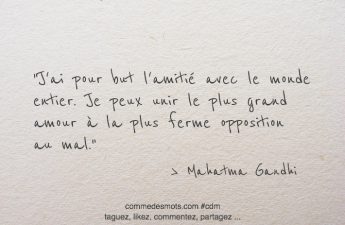 "J'ai pour but l'amitié avec le monde
entier. Je peux unir le plus grand
amour à la plus ferme opposition
au mal."
> Mahatma Gandhi
commedesmots.com #cdm
taguez, likez, commentez, partagez ...